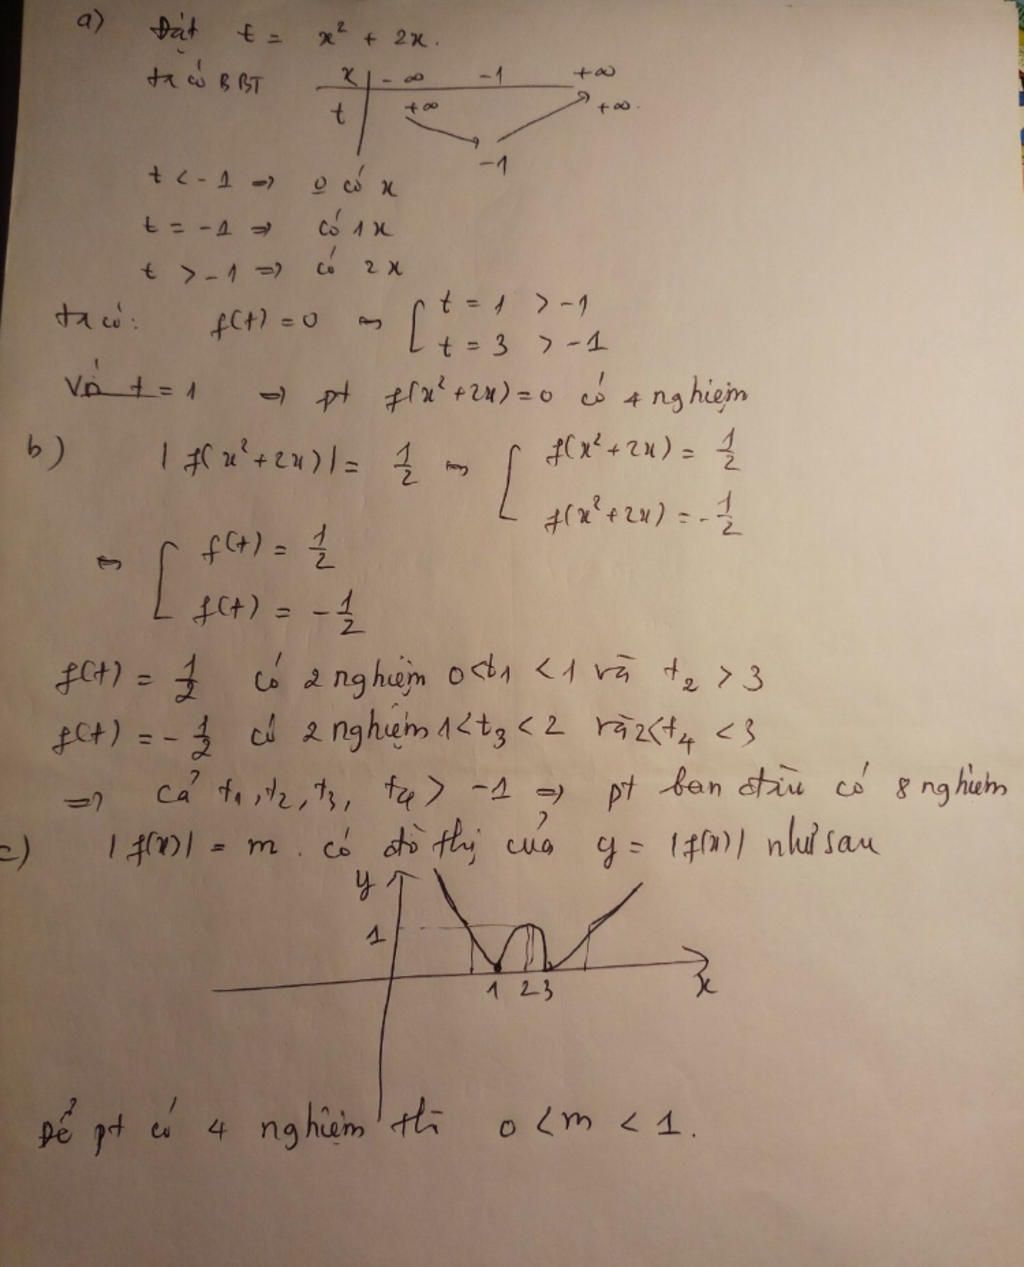 a) Đặt t = x² + 2x.
ta có BBT x | -∞ -1 +∞
t | +∞ -1 +∞.
t < -1 => 0 có x
t = -1 => có 1x
t > -1 => có 2x
ta có: f(t) = 0 ⇔ [ t = 1 > -1
t = 3 > -1
Với t = 1 => pt f(x² + 2x) = 0 có 4 nghiệm
b) |f(x² + 2x)| = 1/2 ⇔ [ f(x² + 2x) = 1/2
f(x² + 2x) = -1/2
⇔ [ f(t) = 1/2
f(t) = -1/2
f(t) = 1/2 có 2 nghiệm 0 < t₁ < 1 và t₂ > 3
f(t) = -1/2 có 2 nghiệm 1 < t₃ < 2 và 2 < t₄ < 3
=> cả t₁, t₂, t₃, t₄ > -1 => pt ban đầu có 8 nghiệm
c) |f(x)| = m. có đồ thị của y = |f(x)| như sau
y
1
1 2 3 x
Để pt có 4 nghiệm thì 0 < m < 1.